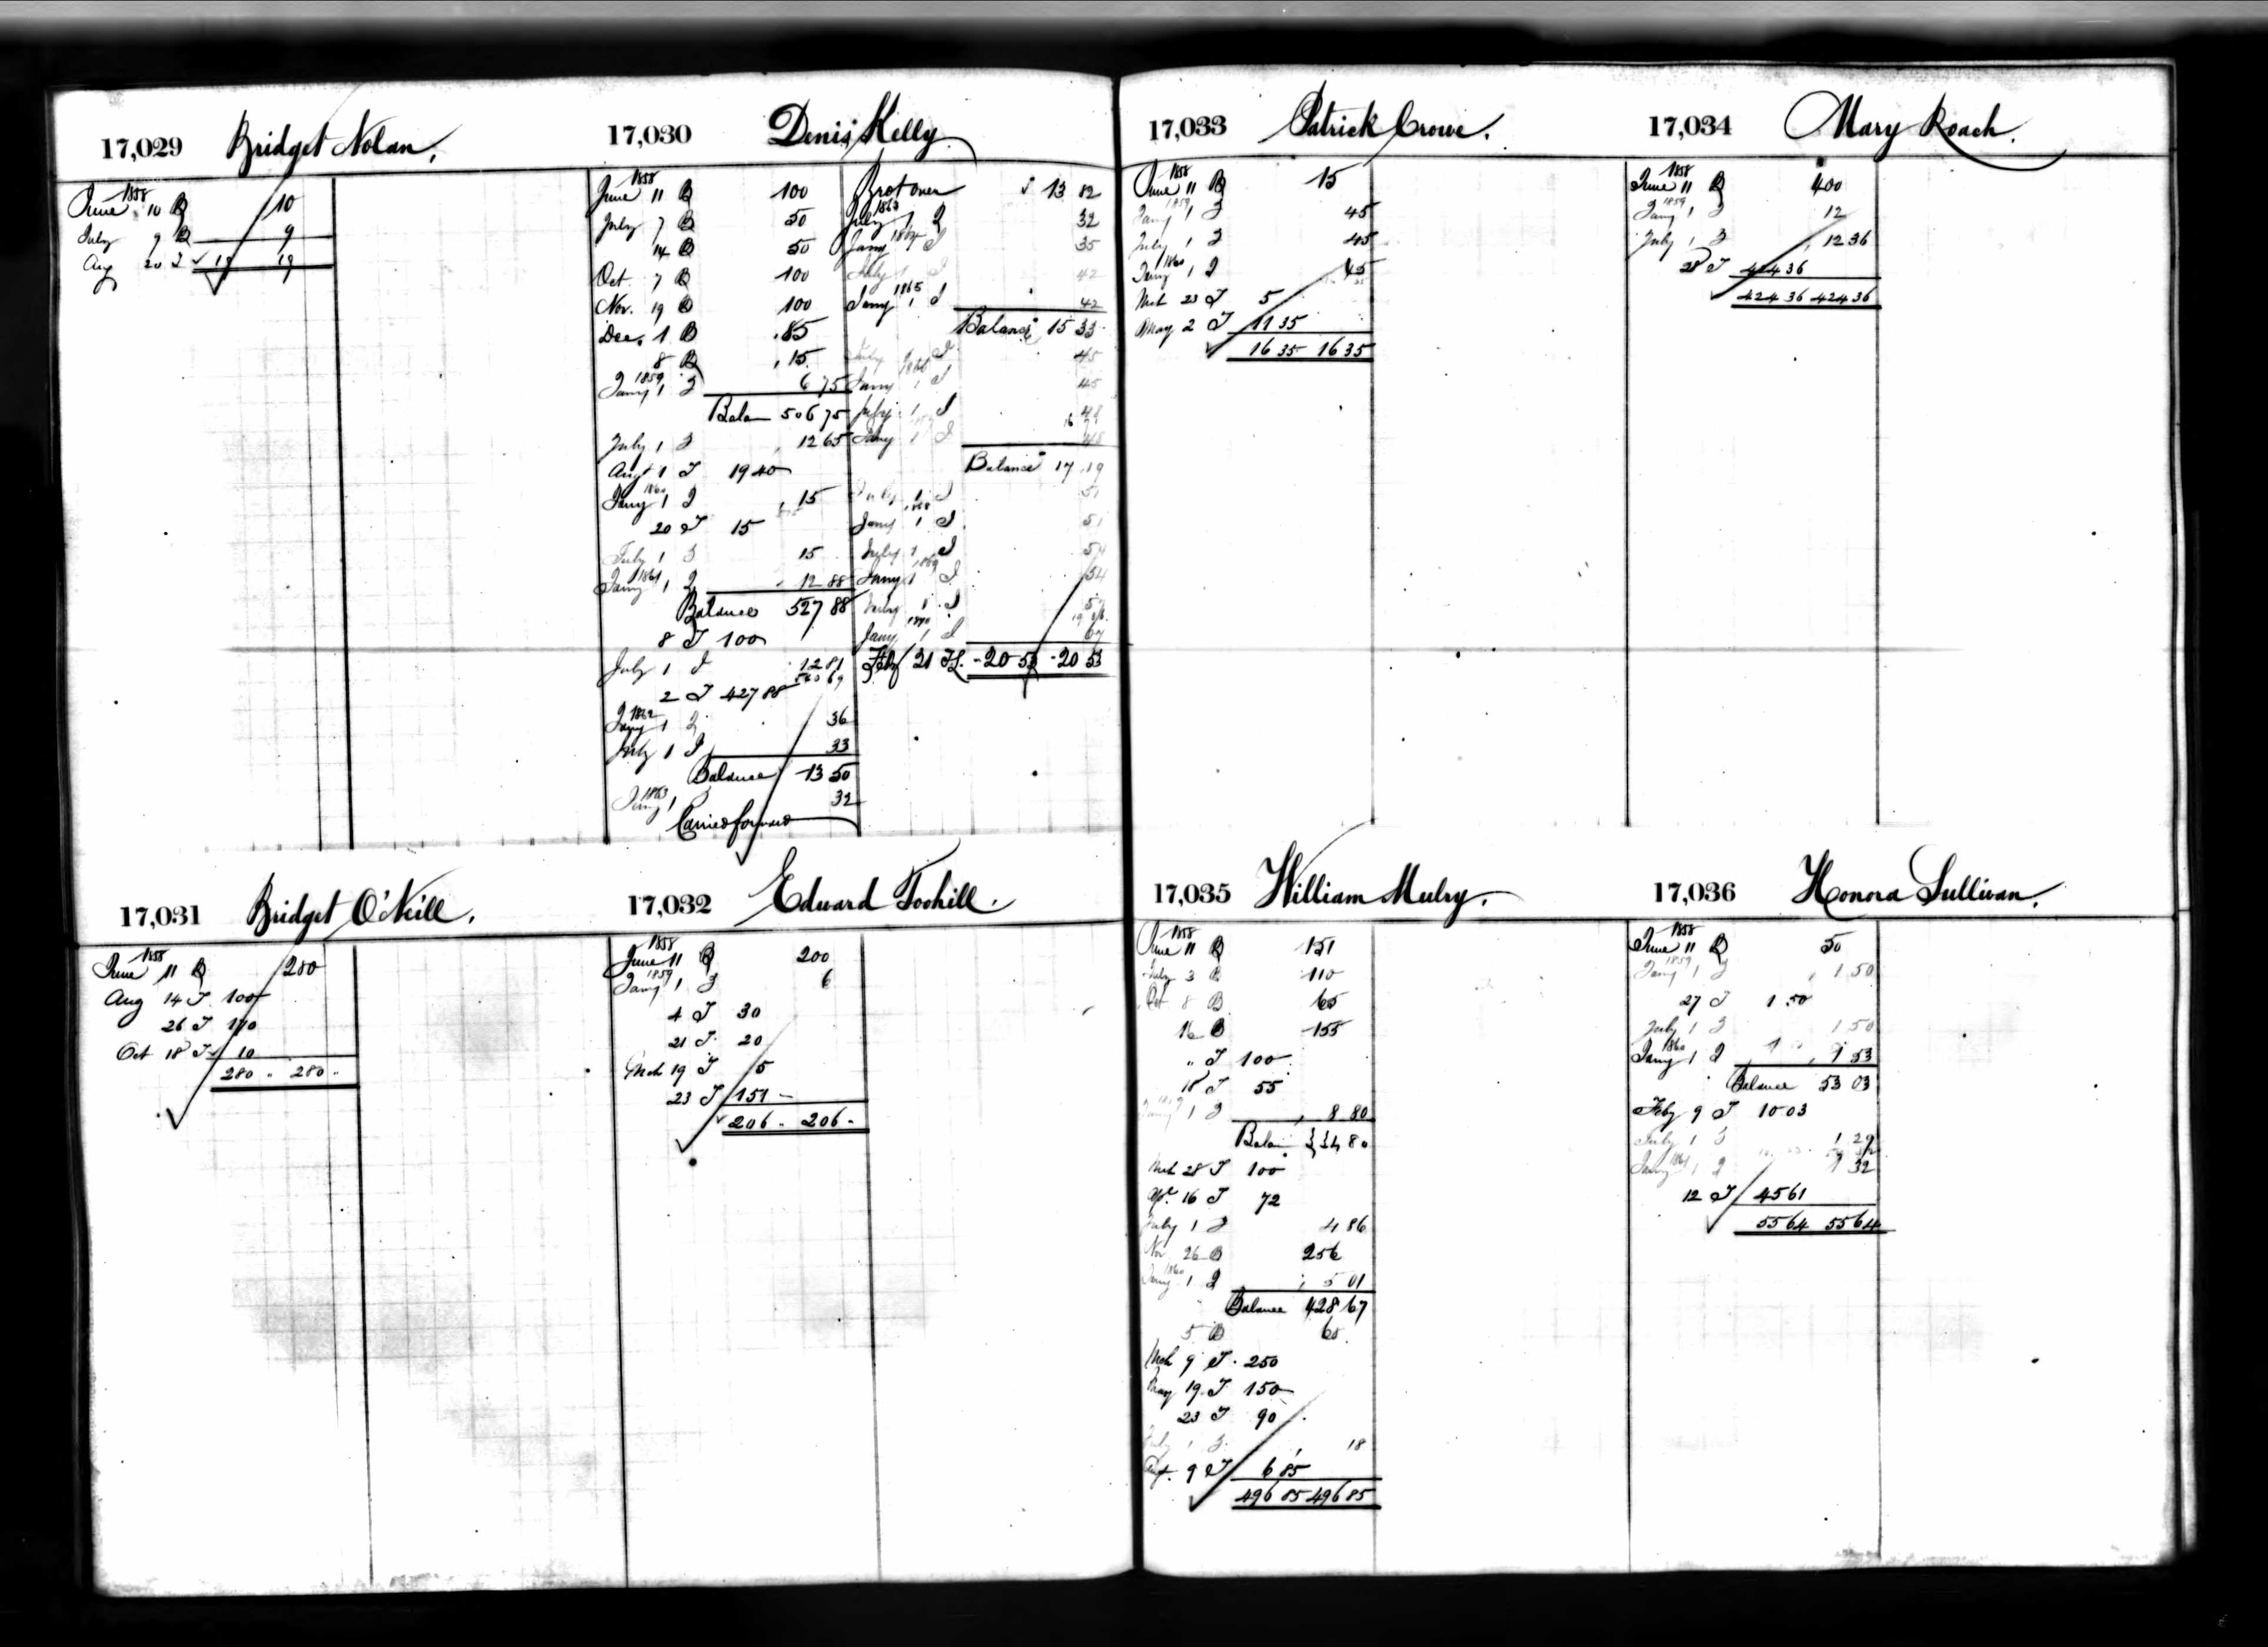 17,029 Bridget Nolan.
1858
June 10 B 10
July 9 B 9
Aug 20 19 19
17,030 Denis Kelly
1858
June 11 B 100
July 7 B 50
14 B 50
Oct. 7 B 100
Nov. 19 B 100
Dec. 1 B 85
8 B 15
1859
Jany 1 I 6 75
Balan 506 75
July 1 I 12 65
Augt 1 T 19 40
1860
Jany 1 I 15
20 T 15
July 1 I 15
1861
Jany 1 I 12 88
Balance 527 88
8 T 100
July 1 I 12 81
2 T 427 88
1862
Jany 1 I 36
July 1 I 33
Balance 13 50
1863
Jany 1 I 32
Carried forward
Brot over 13 82
1863
July 1 I 32
1864
Jany 1 I 35
July 1 I 42
1865
Jany 1 I 42
Balance 15 33
July I 45
1866
Jany 1 I 45
July 1 I 48
Jany 1 I 48
Balance 17 19
July 1 I 51
1868
Jany 1 I 51
July 1 I 54
1869
Jany 1 I 54
July 1 I 57
1870
Jany 1 I
Feby 21 20 53 20 53
17,031 Bridget O'Neill.
1858
June 11 B 280
Aug 14 T 100
26 T 170
Oct 18 T 10
280 280
17,032 Edward Toohill.
1858
June 11 B 200
1859
Jany 1 I 6
4 T 30
21 T 20
Mch 19 T 5
23 T 151
206 206
17,033 Patrick Crowe.
1858
June 11 B 15
1859
Jany 1 I 45
July 1 I 45
1860
Jany 1 I 45
Mch 23 T 5
May 2 T 11 35
16 35 16 35
17,034 Mary Roach.
1858
June 11 B 400
1859
Jany 1 I 12
July 1 I 12 36
28 T 424 36
424 36 424 36
17,035 William Mulry.
1858
June 11 B 151
July 3 B 110
Oct 8 B 65
16 B 155
" T 100
18 T 55
1859
Jany 1 I 8 80
Balan 334 80
Mch 28 T 100
Apl 16 T 72
July 1 I 4 86
Nov 26 B 256
1860
Jany 1 I 5 01
Balance 428 67
5 B 65
Mch 9 T 250
May 19 T 150
23 T 90
July 1 I 18
Augt. 9 T 6 85
496 85 496 85
17,036 Honora Sullivan.
1858
June 11 B 50
1859
Jany 1 I 1 50
27 T 1 50
July 1 I 1 50
1860
Jany 1 I 1 53
Balance 53 03
Feby 9 T 10 03
July 1 I 1 29
1861
Jany 1 I 1 32
12 T 45 61
55 64 55 64